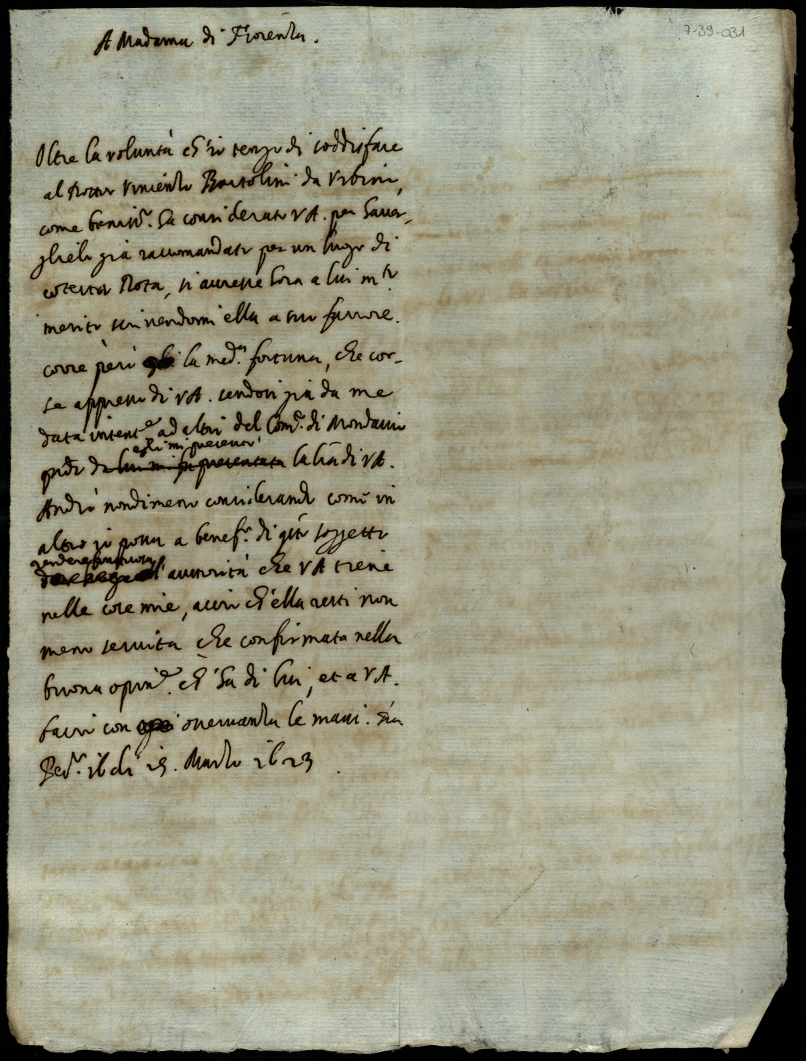 7-39-031
A Madama di Fiorenza.
Oltre la voluntà ch'io tengo di soddisfare
al Dottor Vincenzo Bartolini da Urbino,
come beniss.º ha considerato V A. per haver,
glielo già raccomandato per un luogo di
cotesta Rota, si aurebbe hora a lui m.to
merito scrivendomi ella a suo favore.
corre però la med.ª fortuna, che cor-
se appresso di V A. sendosi già da me
data intent.e ad altri del Com.º di Mondavio
pr.ª
egli mi presentò
da lui mi fu presentata la l'ra di V A.
Andrò nondimeno considerando come in
altro io possa a benef.º di q'to soggetto
l'autorità che V A tiene
nelle cose mie, acciò ch'ella resti non
meno servita che confirmata nella
buona opin.e ch' ha di lui, et a V A.
bacio con osservanza le mani. Da
Pes.º il dì 15. Marzo 1623